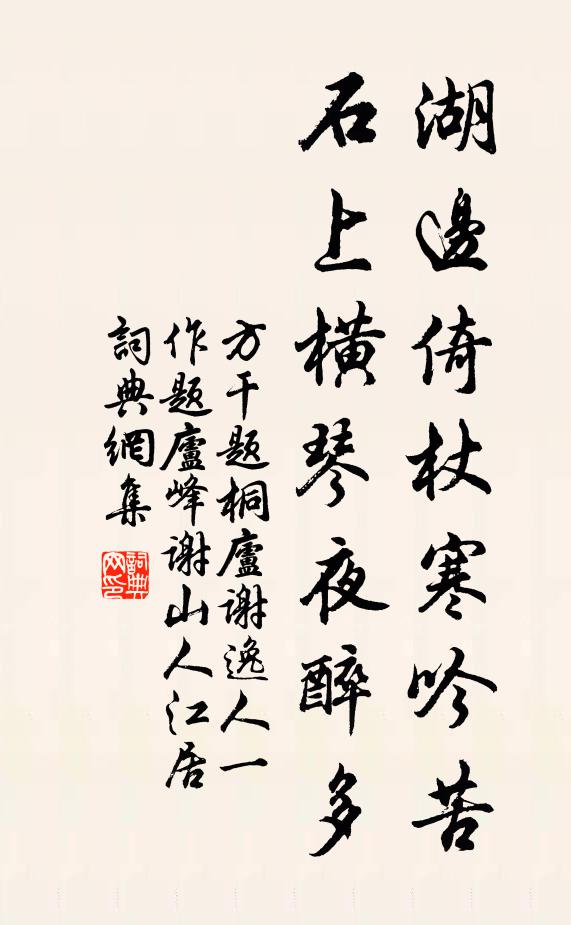 湖邊倚杖寒吟苦
石上橫琴夜醉多
方干题桐廬謝逸人一
作题廬峰謝山人江居
詞典網集
詞典網印